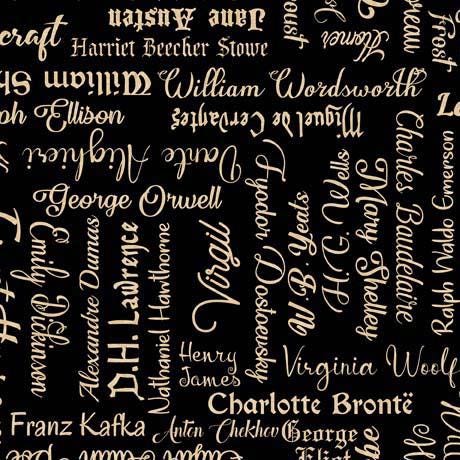 craft
Jane Austen
Harriet Beecher Stowe
Proust
Homer
Frost
William Sh
William Wordsworth
ph Ellison
Miguel de Cervantes
Dante Alighieri
George Orwell
Emily Dickinson
Alexandre Dumas
D.H. Lawrence
Nathaniel Hawthorne
Virgil
Fyodor Dostoevsky
W B Yeats
H G Wells
Mary Shelley
Charles Baudelaire
Ralph Waldo Emerson
Henry
James
Virginia Woolf
Charlotte Brontë
Franz Kafka
Anton Chekhov
George
Eliot